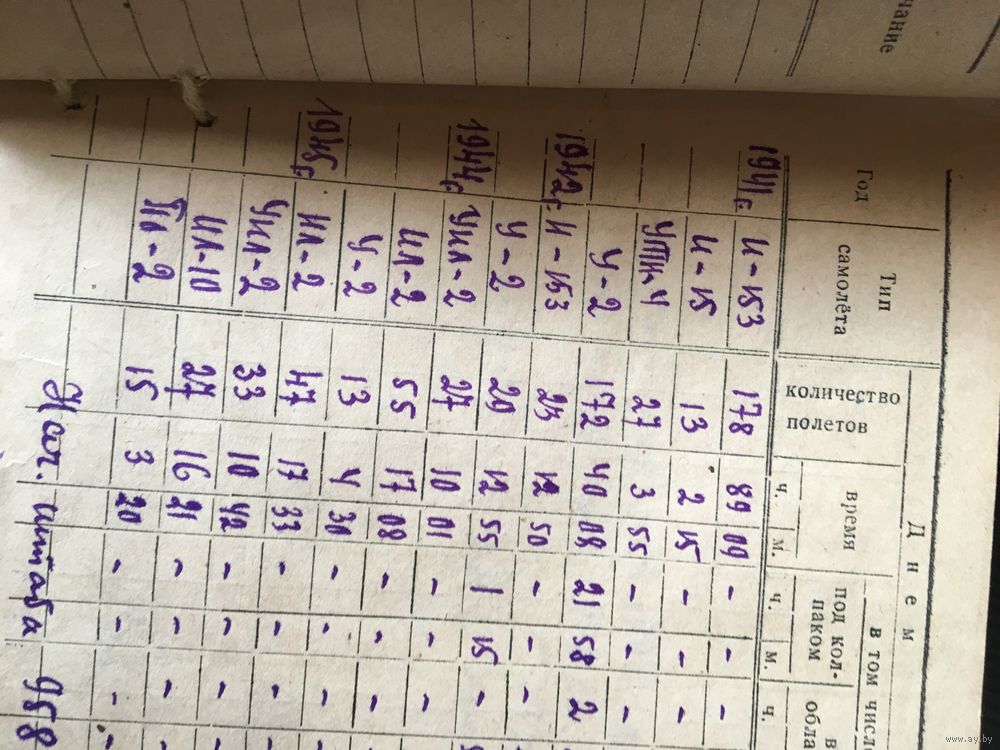 чание
Днем
в том числ
Год
Тип самолёта
количество полетов
время
под кол-
паком
в
обла
ч. м. ч. м. ч.
1941г И-153 178 89 09 - - -
И-15 13 2 15 - - -
УТИ-4 27 3 55 - - -
1942г У-2 172 40 08 21 58 2
И-153 23 12 50 - - -
У-2 29 12 55 1 15 -
1944г УИЛ-2 27 10 01 - - -
ИЛ-2 55 17 08 - - -
У-2 13 4 30 - - -
1945г ИЛ-2 47 17 33 - - -
УИЛ-2 33 10 42 - - -
ИЛ-10 27 16 21 - - -
-2 15 3 20 - - -
Нач. штаба 958
www.ay.by